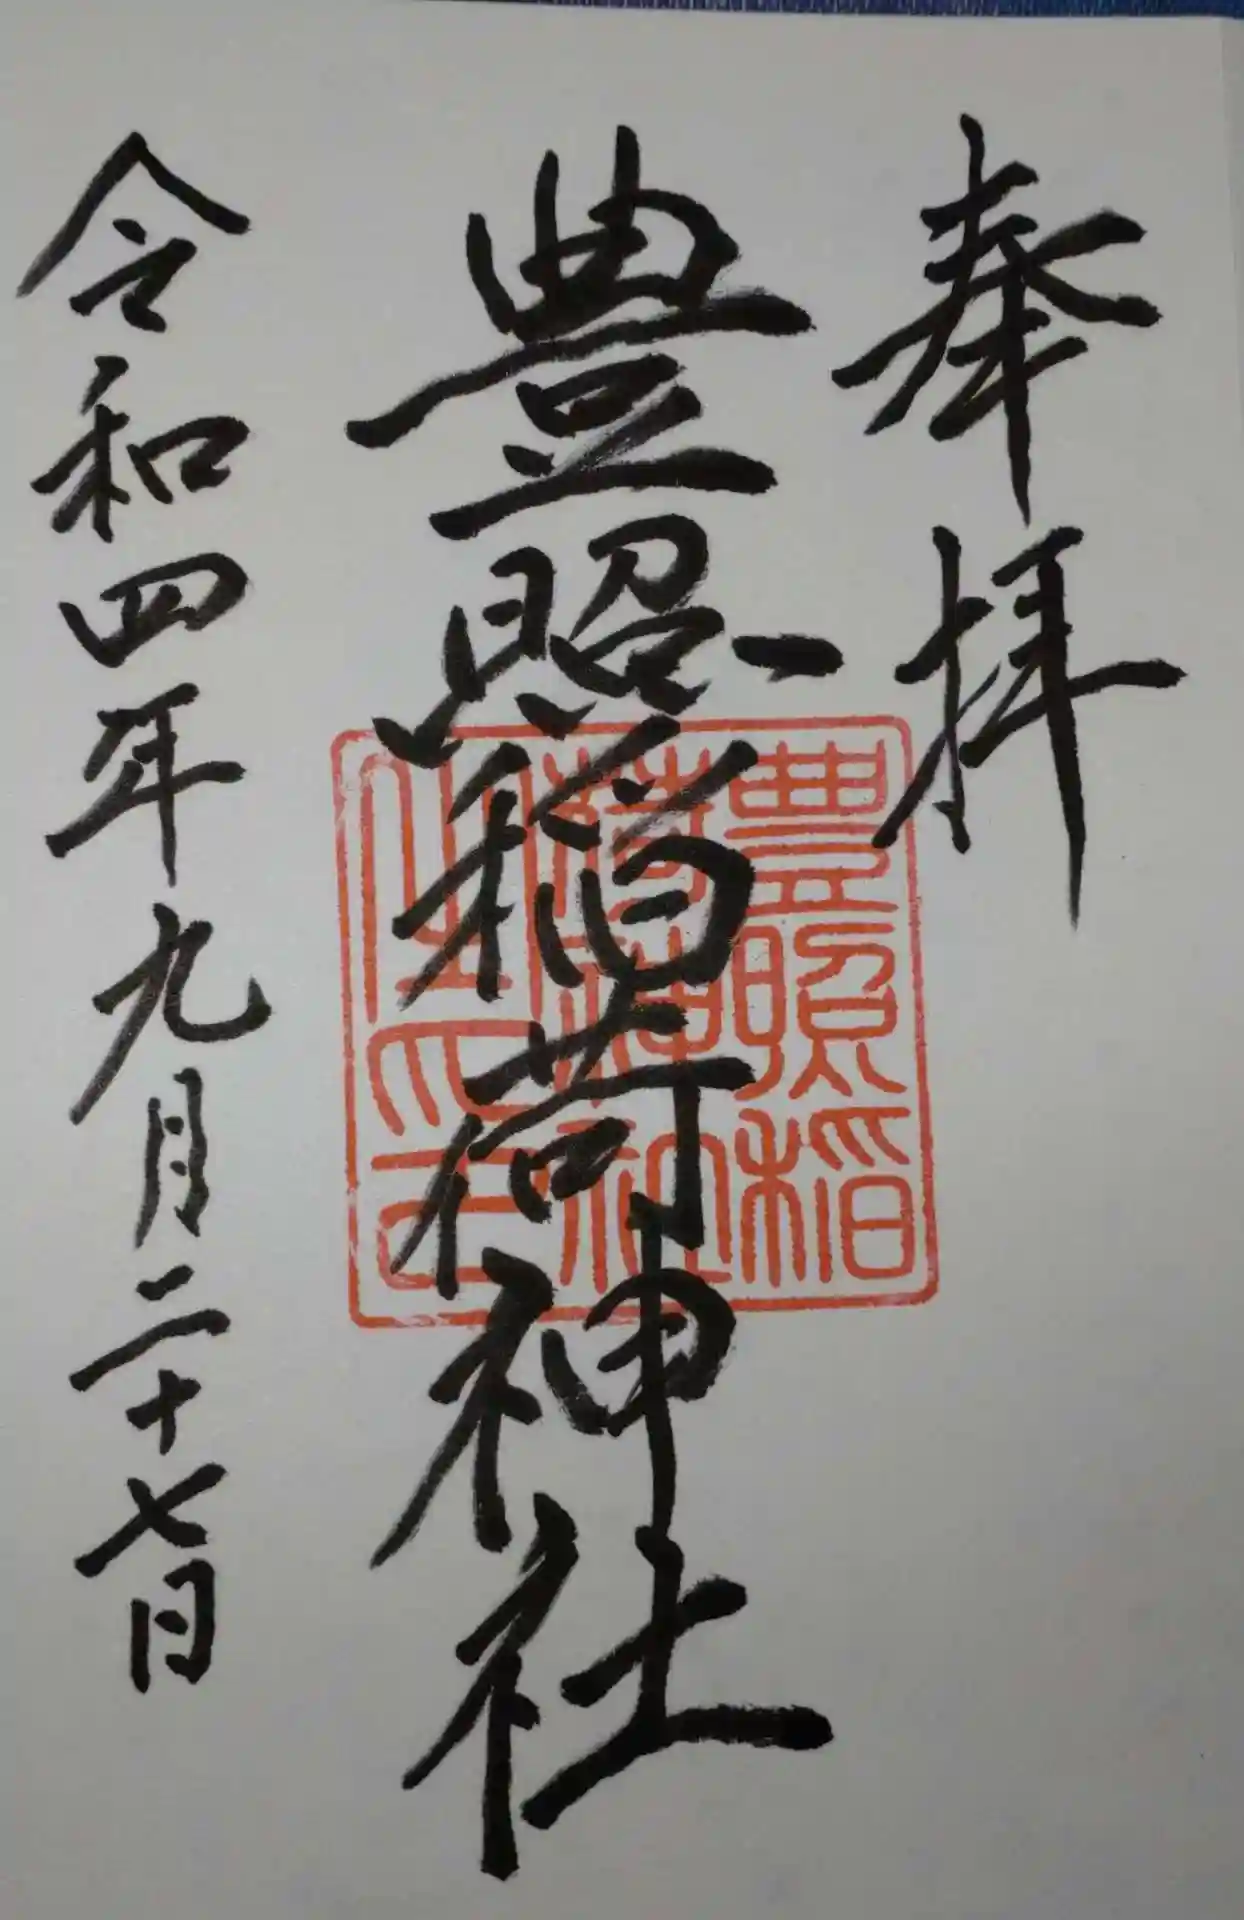 奉拝
豊照稲荷神社
令和四年九月二十七日
豊照稲
荷神社